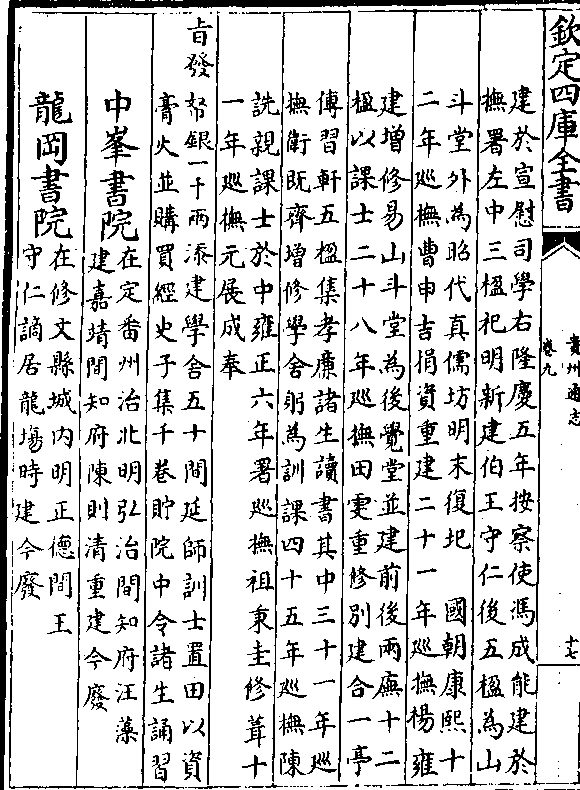 欽定四庫全書
貴州通志
卷九
十七
建於宣慰司學右隆慶五年按察使馮成能建於
撫署左中三楹祀明新建伯王守仁後五楹為山
斗堂外為昭代真儒坊明末復圯 國朝康熙十
二年巡撫曹申吉捐資重建二十一年巡撫楊雍
建增修易山斗堂為後覺堂並建前後兩廡十二
楹以課士二十八年巡撫田雯重修別建合一亭
傳習軒五楹集孝廉諸生讀書其中三十一年巡
撫衛既齊增修學舍躬為訓課四十五年巡撫陳
詵親課士於中雍正六年署巡撫祖秉圭修葺十
一年巡撫元展成奉
旨發帑銀一千兩添建學舍五十間延師訓士置田以資
膏火並購買經史子集千卷貯院中令諸生誦習
中峯書院
在定番州治北明弘治間知府汪藻
建嘉靖間知府陳則清重建今廢
龍岡書院
在修文縣城內明正德間王
守仁謫居龍場時建今廢